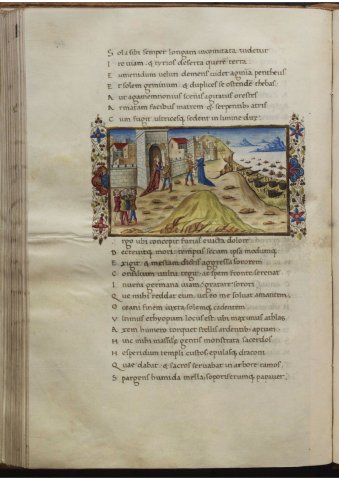 Sola sibi semper longam incomitata videtur
Ire viam & tyrios deserta querere terra:
Eumenidum veluti demens videt agmina pentheus
Et solem geminum & duplices se ostendere thebas
Aut agamemnonius scenis agitatus orestes
Armatam facibus matrem & serpentibus atris
Cum fugit ultricesq; sedent in limine dirę:
Ergo ubi concepit furias evicta dolore
Decrevitq; mori: tempus secum ipsa modumq;
Exigit & mestam dictis aggressa sororem
Consilium vultu tegit ac spem fronte serenat
Inveni germana viam: gratare sorori
Quę mihi reddat eum: vel eo me solvat amantem
Oceani finem iuxta solemq; cadentem
Ultimus ethyopum locus est: ubi maximus athlas
Axem humero torquet stellis ardentibus aptum
Hinc mihi massilę gentis monstrata sacerdos
Hesperidum templi custos: epulasq; draconi
Quae dabat & sacros servabat in arbore ramos
Spargens humida mella: soporiferumq; papaver